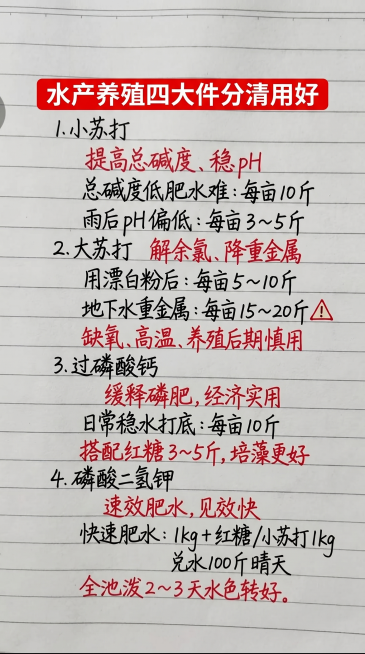 水产养殖四大件分清用好
1.小苏打
提高总碱度、稳pH
总碱度低肥水难:每亩10斤
雨后pH偏低:每亩3~5斤
2.大苏打 解余氯、降重金属
用漂白粉后:每亩5~10斤
地下水重金属:每亩15~20斤⚠
缺氧、高温、养殖后期慎用
3.过磷酸钙
缓释磷肥,经济实用
日常稳水打底:每亩10斤
搭配红糖3~5斤,培藻更好
4.磷酸二氢钾
速效肥水,见效快
快速肥水:1kg+红糖/小苏打1kg
兑水100斤晴天
全池泼2~3天水色转好。